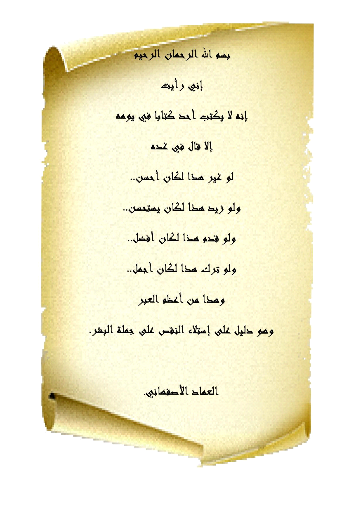 بسم الله الرحمان الرحيم
إني رأيت
إنه لا يكتب أحد كتابا في يومه
إلا قال في غده
لو غير هذا لكان أحسن..
ولو زيد هذا لكان يستحسن..
ولو قدم هذا لكان أفضل..
ولو ترك هذا لكان أجمل..
وهذا من أعظم العبر
وهو دليل على إستلاء النقص على جملة البشر.
العماد الأصفهاني.